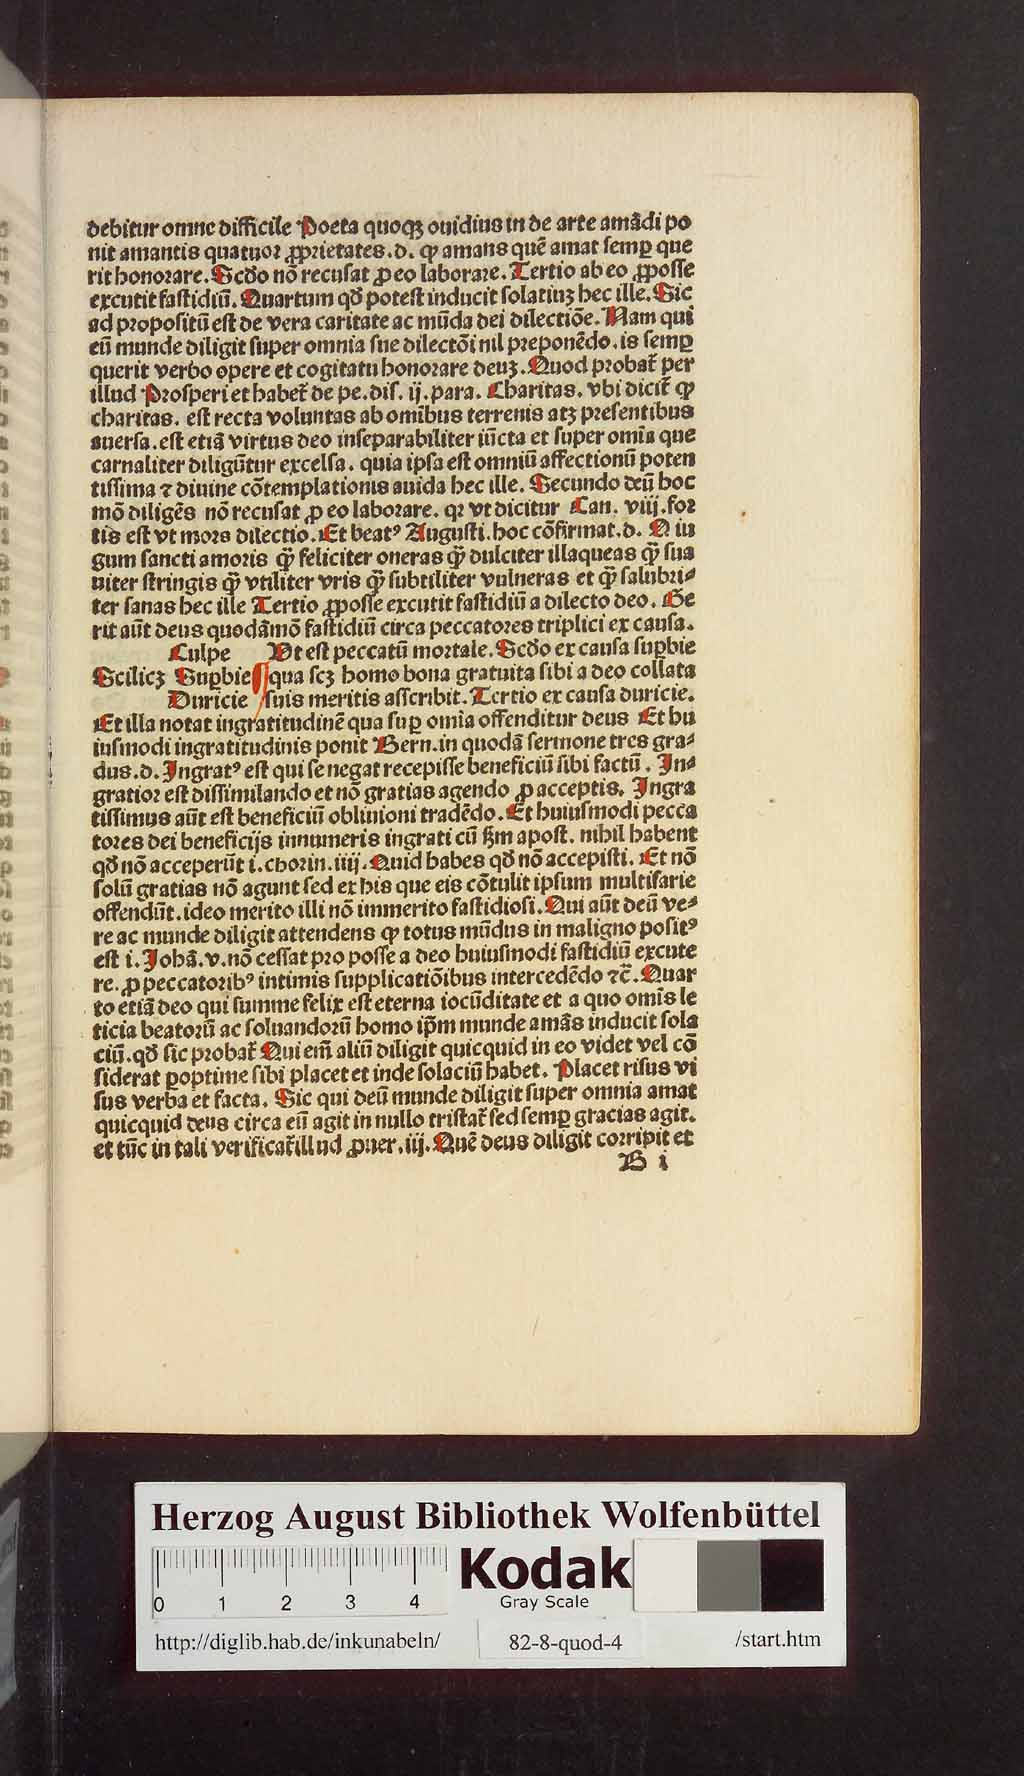 debitur omne difficile Poeta quoqꝫ ouidius in de arte amādi po
nit amantis quatuor ꝓprietates. d. ꝙ amans quē amat semꝑ que
rit honorare. Scd̄o nō recusat ꝓ eo laborare. Tertio ab eo ꝓposse
excutit fastidiū. Quartum qd̄ potest inducit solatiuꝫ hec ille. Sic
ad propositū est de vera caritate ac mūda dei dilectiōe. Nam qui
eū munde diligit super omnia sue dilectōi nil preponēdo. is semꝑ
querit verbo opere et cogitatu honorare deuꝫ. Quod probat̄ per
illud Prosperi et habet̄ de pe. dis. ij. para. Charitas. vbi dicit̄ ꝙ
charitas. est recta voluntas ab omībus terrenis atꝫ presentibus
auersa. est etiā virtus deo inseparabiliter iūcta et super omīa que
carnaliter diligūtur excelsa. quia ipsa est omniū affectionū poten
tissima ⁊ diuine cōtemplationis auida hec ille. Secundo deū hoc
mō diligēs nō recusat ꝓ eo laborare. qꝛ vt dicitur Can. viij. for
tis est vt mors dilectio. Et beatꝰ Augusti. hoc cōfirmat. d. O iu
gum sancti amoris ꝙ̄ feliciter oneras ꝙ̄ dulciter illaqueas ꝙ̄ sua
uiter stringis ꝙ̄ vtiliter vris ꝙ̄ subtiliter vulneras et ꝙ̄ salubri⸗
ter sanas hec ille Tertio ꝓposse excutit fastidiū a dilecto deo. Ge
rit aūt deus quodāmō fastidiū circa peccatores triplici ex causa.
Culpe Vt est peccatū mortale. Scd̄o ex causa suꝑbie
Scilicꝫ Suꝑbie qua scꝫ homo bona gratuita sibi a deo collata
Duricie suis meritis asscribit. Tertio ex causa duricie.
Et illa notat ingratitudinē qua suꝑ omīa offenditur deus Et hu
iusmodi ingratitudinis ponit Bern. in quodā sermone tres gra⸗
dus. d. Ingratꝰ est qui se negat recepisse beneficiū sibi factū. In⸗
gratior est dissimilando et nō gratias agendo ꝓ acceptis. Ingra
tissimus aūt est beneficiū obliuioni tradēdo. Et huiusmodi pecca
tores dei beneficijs innumeris ingrati cū ẜm apost. nihil habent
qd̄ nō acceperūt i. chorin. iiij. Quid habes qd̄ nō accepisti. Et nō
solū gratias nō agunt sed ex his que eis cōtulit ipsum multifarie
offendūt. ideo merito illi nō immerito fastidiosi. Qui aūt deū ve⸗
re ac munde diligit attendens ꝙ totus mūdus in maligno positꝰ
est i. Johā. v. nō cessat pro posse a deo huiusmodi fastidiū excute
re. ꝓ peccatoribꝰ intimis supplicatiōibus intercedēdo ⁊c̄. Quar
to etiā deo qui summe felix est eterna iocūditate et a quo omīs le
ticia beatorū ac soluandorū homo ip̄m munde amās inducit sola
ciū. qd̄ sic probat̄ Qui em̄ aliū diligit quicquid in eo videt vel cō
siderat ꝑoptime sibi placet et inde solaciū habet. Placet risus vi
sus verba et facta. Sic qui deū munde diligit super omnia amat
quicquid deus circa eū agit in nullo tristat̄ sed semꝑ gracias agit.
et tūc in tali verificat̄ illud ꝓuer. iij. Quē deus diligit corripit et
B i
Herzog August Bibliothek Wolfenbüttel
0 1 2 3 4
Kodak
Gray Scale
http://diglib.hab.de/inkunabeln/ 82-8-quod-4 /start.htm